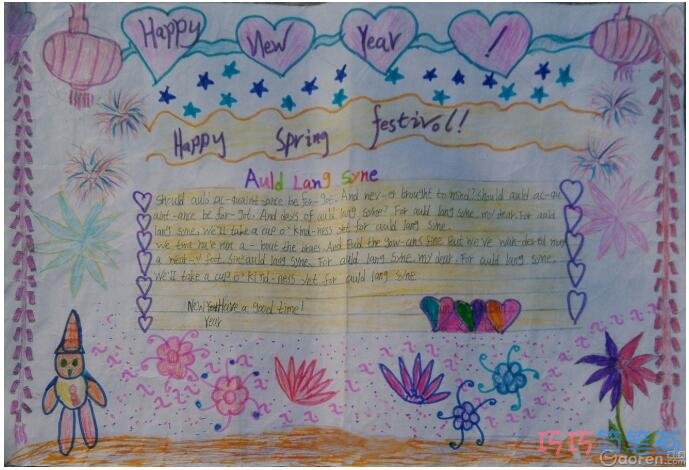 Happy New Year !
Happy Spring festivol!
Auld Lang Syne
Should auld ac-quaint-ance be for-got, And nev-er brought to mind? Should auld ac-qu
aint-ance be for-got, And days of auld lang syne? For auld lang syne, my dear, For auld
lang syne, We'll take a cup o' kind-ness yet for auld lang syne.
We twa ha'e run a-bout the braes, And pu'd the gow-ans fine But we've wan-dered mon
a wear-y foot, Sin' auld lang syne. For auld lang syne, my dear, For auld lang syne,
We'll take a cup o' kind-ness yet for auld lang syne
New Have a good time!
Year
巧巧简笔画
aoren.com